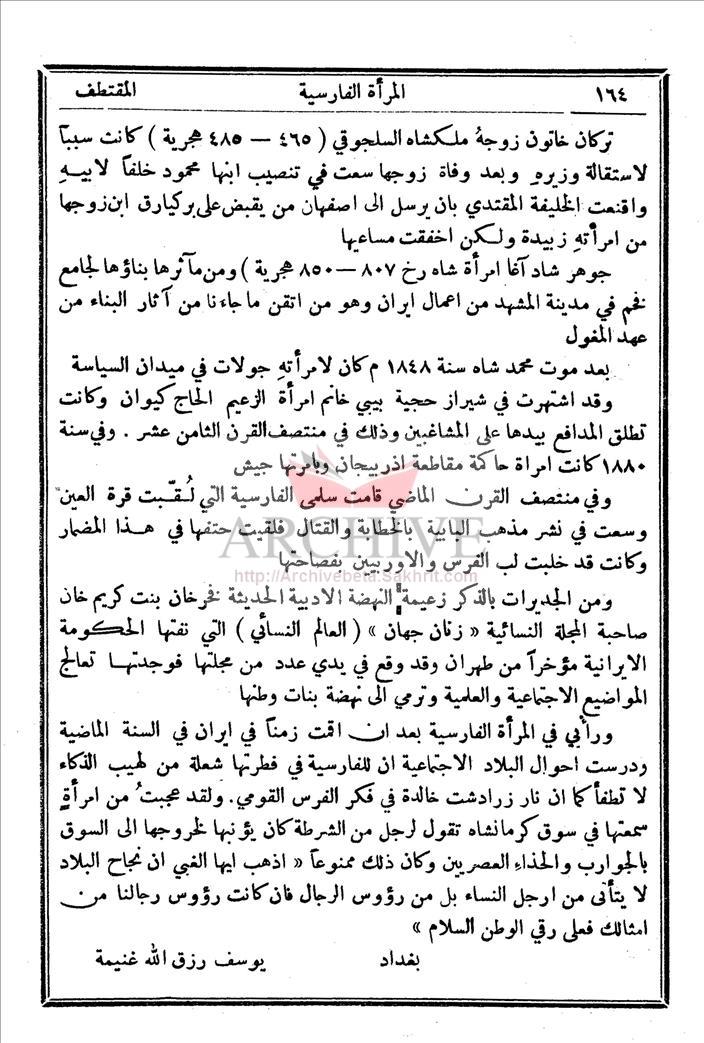 ١٦٤ المرأة الفارسية المقتطف
تركان خاتون زوجهُ ملكشاه السلجوقي ( ٤٦٥ — ٤٨٥ هجرية ) كانت سبباً
لاستقالة وزيرهِ وبعد وفاة زوجها سعت في تنصيب ابنها محمود خلفاً لابيهِ
واقنعت الخليفة المقتدي بان يرسل الى اصفهان من يقبض على بركيارق ابن زوجها
من امرأتهِ زبيدة ولكن اخفقت مساعيها
جوهر شاد آغا امرأة شاه رخ ٨٠٧ — ٨٥٠ هجرية ) ومن مآثرها بناؤها لجامع
فخم في مدينة المشهد من اعمال ايران وهو من اتقن ما جاءنا من آثار البناء من
عهد المغول
بعد موت محمد شاه سنة ١٨٤٨ م كان لامرأتهِ جولات في ميدان السياسة
وقد اشتهرت في شيراز حجية بيبي خانم امرأة الزعيم الحاج كيوان وكانت
تطلق المدافع بيدها على المشاغبين وذلك في منتصف القرن الثامن عشر . وفي سنة
١٨٨٠ كانت امراة حاكمة مقاطعة اذربيجان وبامرتها جيش
وفي منتصف القرن الماضي قامت سلمى الفارسية التي لُقّبت قرة العين
وسعت في نشر مذهب البابية بالخطابة والقتال فلقيت حتفها في هذا المضمار
ARCHIVE
وكانت قد خلبت لب الفرس والاوربيين بفصاحتها
http://Archivebeta.Sakhrit.com
ومن الجديرات بالذكر زعيمة النهضة الادبية الحديثة فخرخان بنت كريم خان
صاحبة المجلة النسائية « زنان جهان » ( العالم النسائي ) التي نفتها الحكومة
الايرانية مؤخراً من طهران وقد وقع في يدي عدد من مجلتها فوجدتها تعالج
المواضيع الاجتماعية والعلمية وترمي الى نهضة بنات وطنها
ورأيي في المرأة الفارسية بعد ان اقمت زمناً في ايران في السنة الماضية
ودرست احوال البلاد الاجتماعية ان للفارسية في فطرتها شعلة من لهيب الذكاء
لا تطفأ كما ان نار زرادشت خالدة في فكر الفرس القومي. ولقد عجبتُ من امرأةٍ
سمعتها في سوق كرمانشاه تقول لرجل من الشرطة كان يؤنبها لخروجها الى السوق
بالجوارب والحذاء العصريين وكان ذلك ممنوعاً « اذهب ايها الغبي ان نجاح البلاد
لا يتأتى من ارجل النساء بل من رؤوس الرجال فان كانت رؤوس رجالنا من
امثالك فعلى رقي الوطن السلام »
بغداد يوسف رزق الله غنيمة